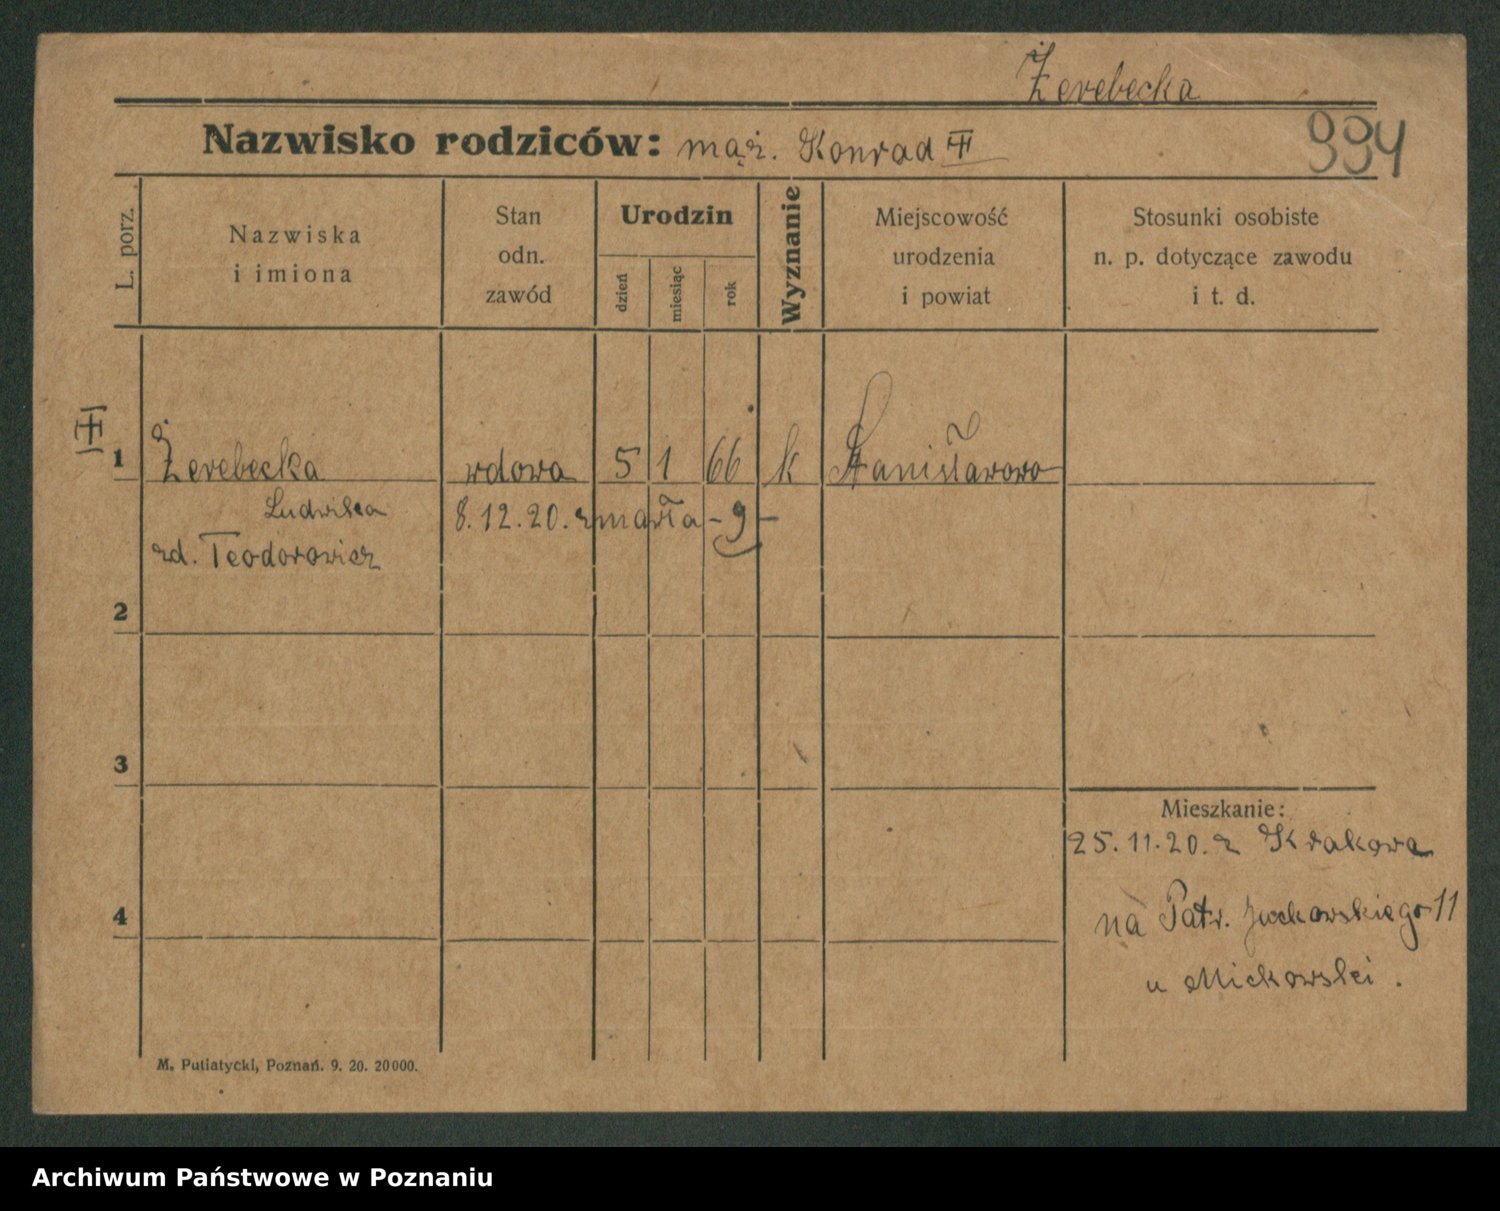 Żerebecka
Nazwisko rodziców: mąż. Konrad
994
L. porz.
Nazwiska
i imiona
Stan
odn.
zawód
Urodzin
dzień
miesiąc
rok
Wyznanie
Miejscowość
urodzenia
i powiat
Stosunki osobiste
n. p. dotyczące zawodu
i t. d.
1 Żerebecka wdowa 5 1 66 k Stanisławowo
Ludwika 8.12.20. zmarła - 9 -
zd. Teodorowicz
2
3
Mieszkanie:
25.11.20. z Krakowa
4
na Patr. Jackowskiego 11
u Mickowski.
M. Putiatycki, Poznań. 9. 20. 20000.
Archiwum Państwowe w Poznaniu